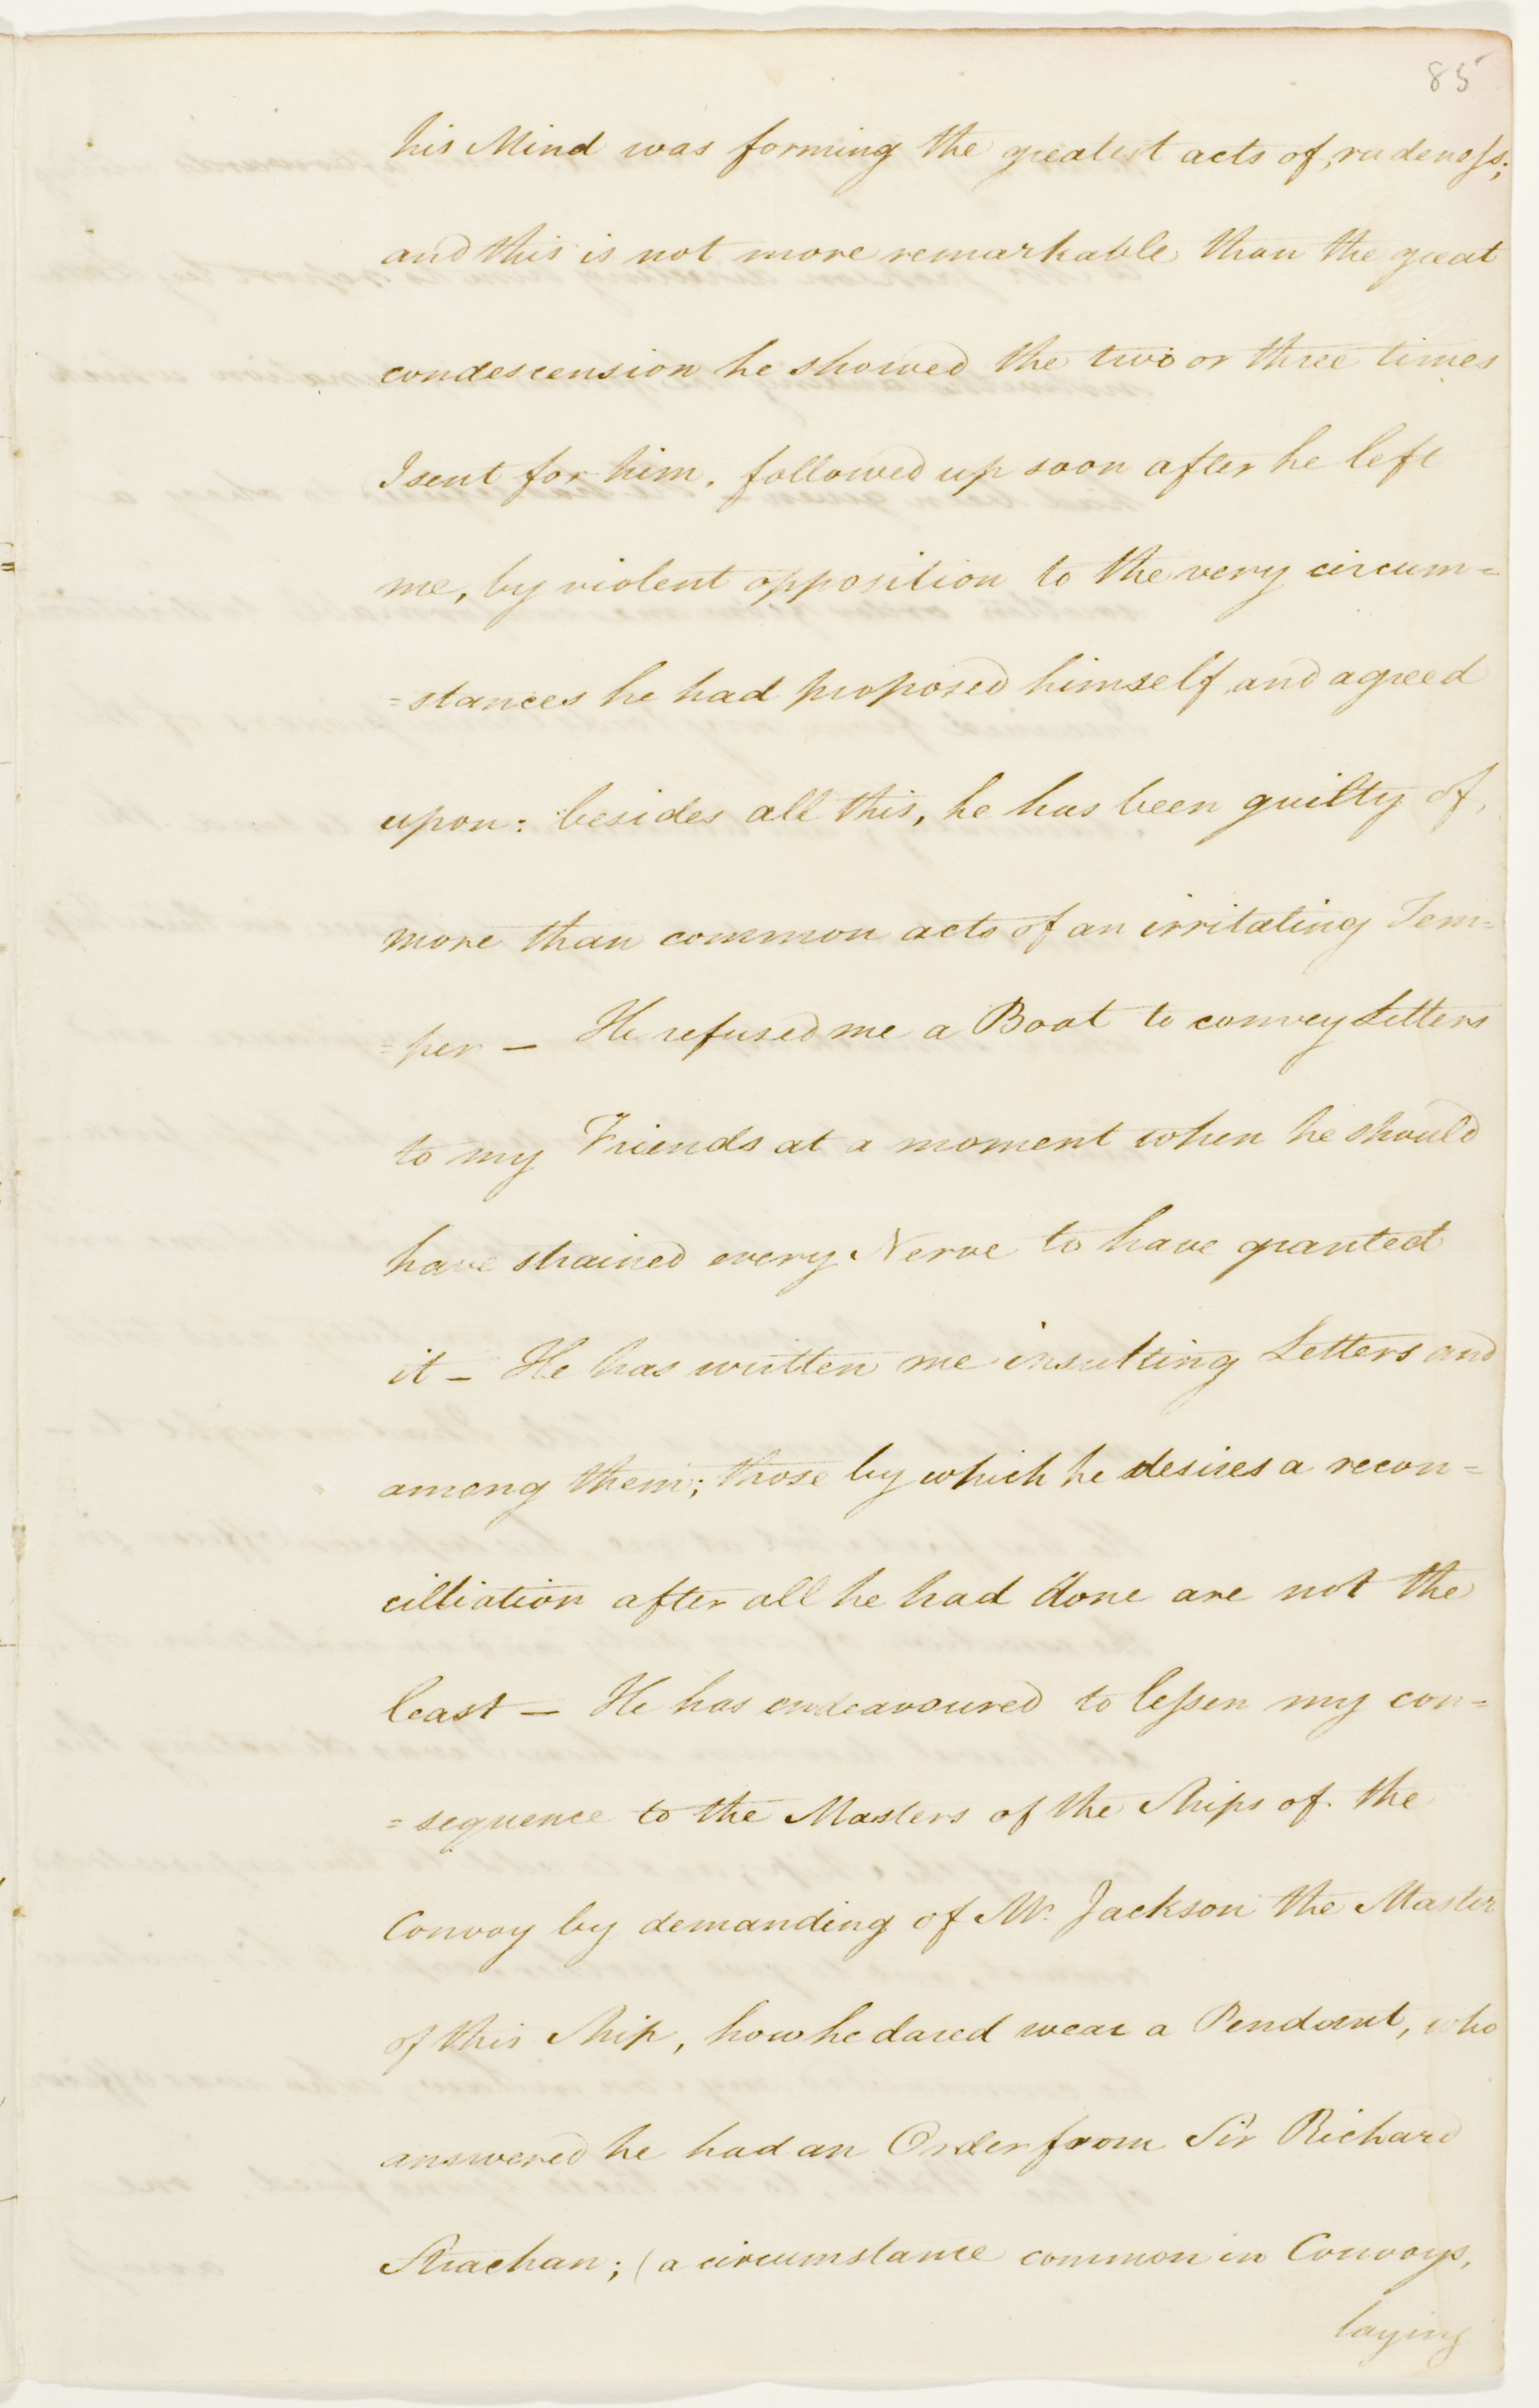 85
his Mind was forming the greatest acts of rudeness;
and this is not more remarkable than the great
condescension he showed the two or three times
I sent for him, followed up soon after he left
me, by violent opposition to the very circum=
=stances he had proposed himself and agreed
upon: besides all this, he has been guilty of,
more than common acts of an irritating Tem=
=per — He refused me a Boat to convey Letters
to my Friends at a moment when he should
have strained every Nerve to have granted
it — He has written me insulting Letters and
among them; those by which he desires a recon=
cilliation after all he had done are not the
least — He has endeavoured to lessen my con=
=sequence to the Masters of the Ships of the
Convoy by demanding of Mr. Jackson the Master
of this Ship, how he dared wear a Pendant, who
answered he had an Order from Sir Richard
Strachan; (a circumstance common in Convoys,
laying